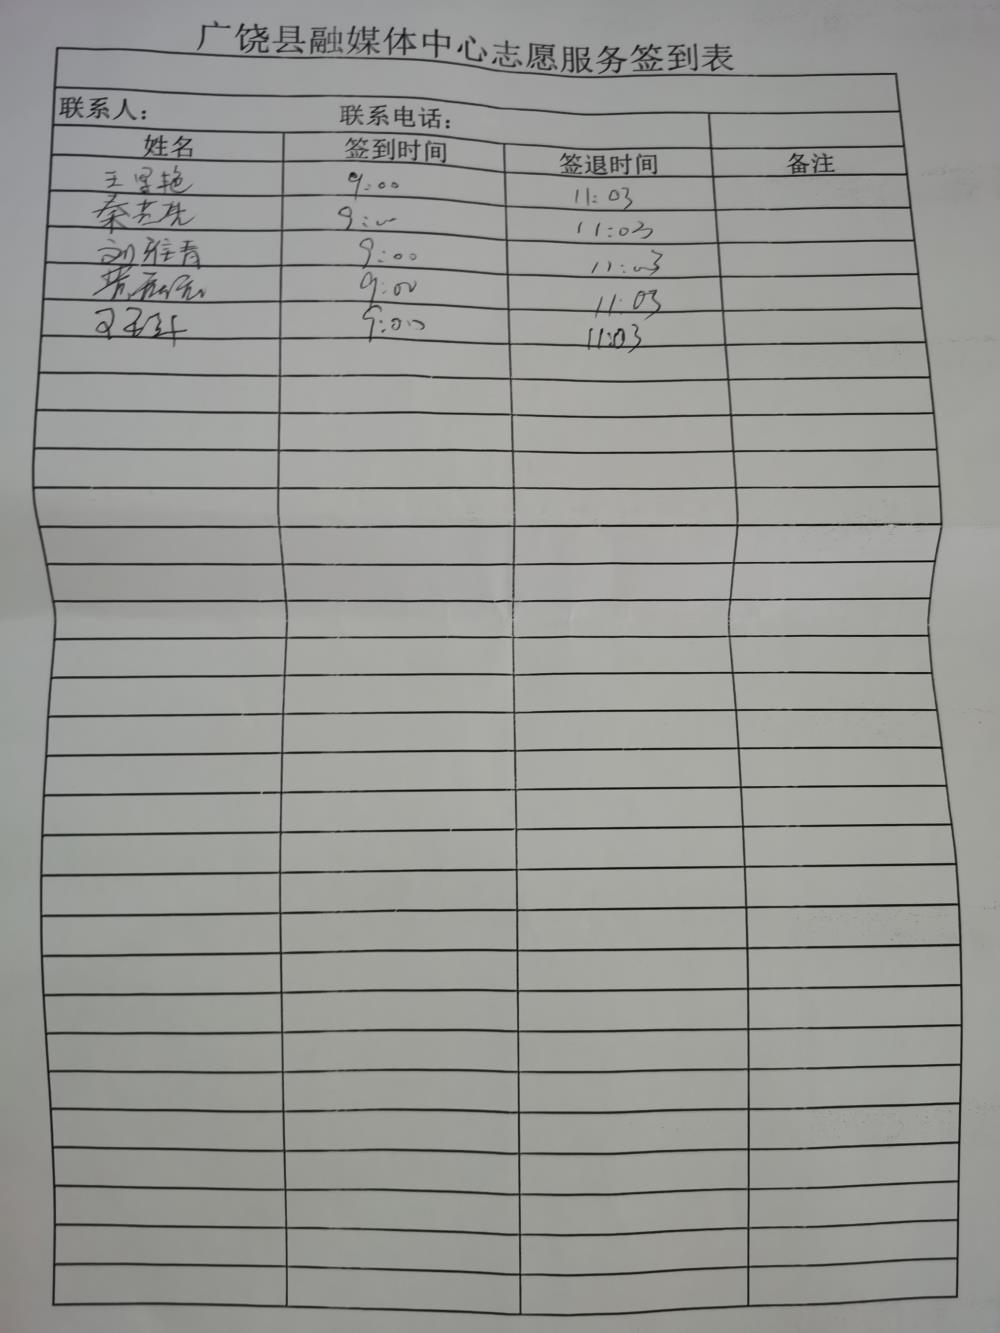 广饶县融媒体中心志愿服务签到表
联系人： 联系电话：
姓名 签到时间 签退时间 备注
王 艳 9:00 11:03
秦 9:00 11:03
刘雅青 9:00 11:03
9:00 11:03
王 9:00 11:03